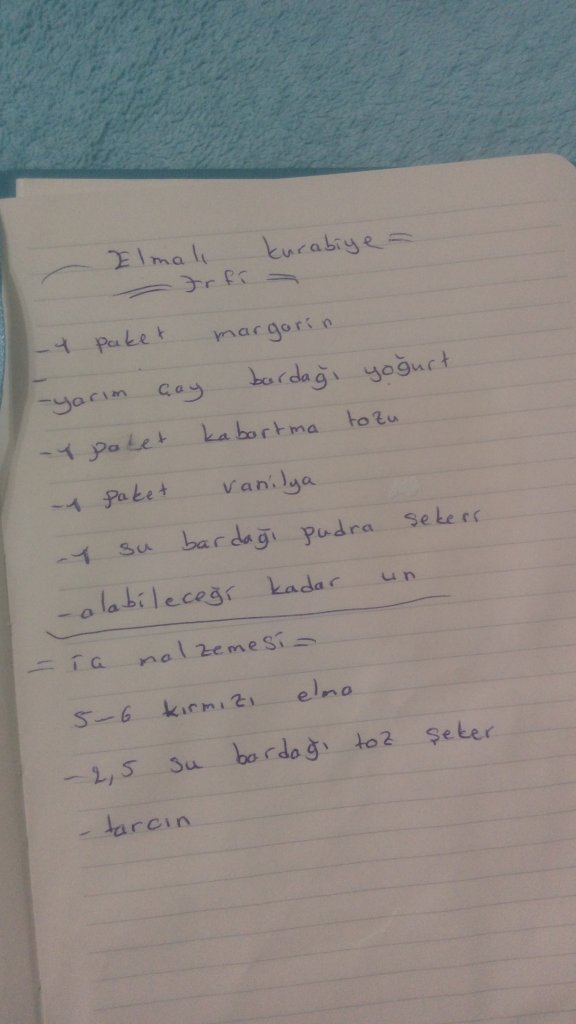 Elmalı kurabiye =
= Trfi =
-1 paket margarin
-yarım çay bardağı yoğurt
-1 paket kabartma tozu
-1 paket vanilya
-1 su bardağı pudra şekeri
-alabileceği kadar un
= iç malzemesi =
5-6 kırmızı elma
-2,5 su bardağı toz şeker
-tarcın